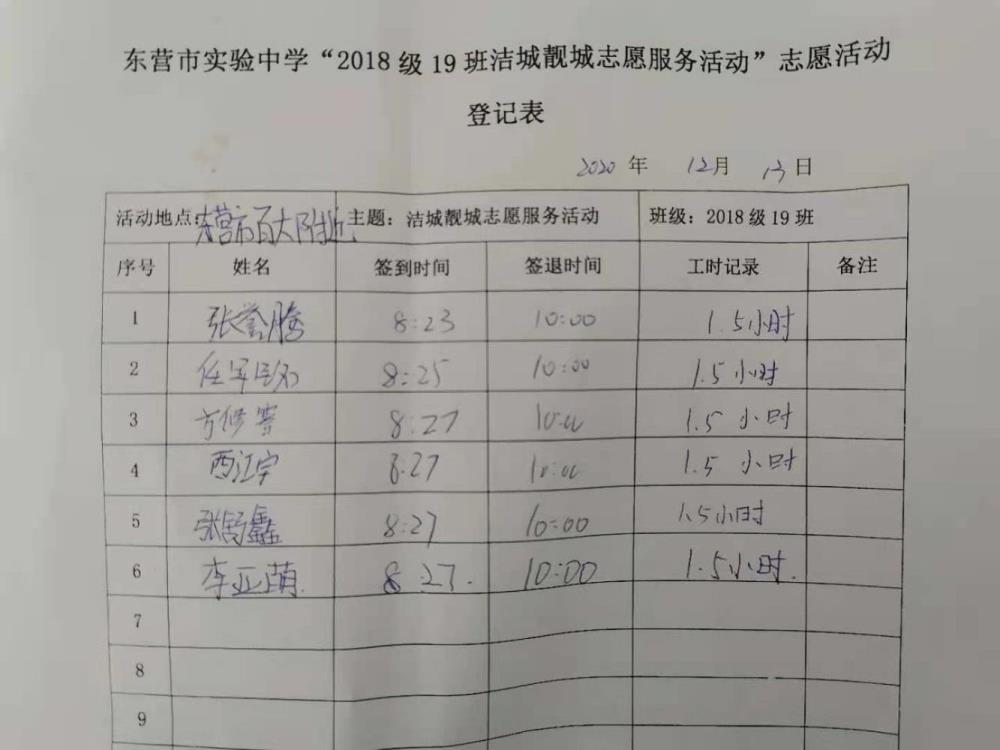 东营市实验中学“2018级19班洁城靓城志愿服务活动”志愿活动
登记表
2020年 12月 13日
活动地点:东营市百大附近 主题：洁城靓城志愿服务活动 班级：2018级19班
序号 姓名 签到时间 签退时间 工时记录 备注
1 张誉腾 8:23 10:00 1.5小时
2 8:25 10:00 1.5小时
3 方修 8:27 10:00 1.5小时
4 西江宇 8:27 10:00 1.5小时
5 张舒鑫 8:27 10:00 1.5小时
6 李亚萌. 8:27. 10:00 1.5小时.
7
8
9